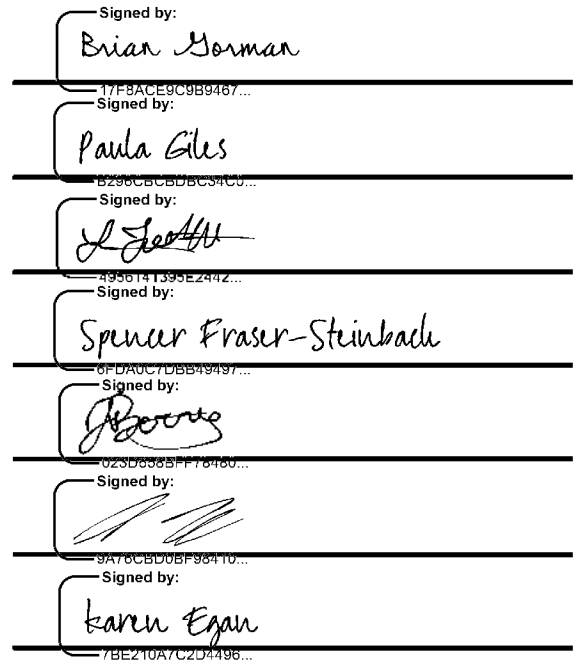 Signed by:
Brian Gorman
17F8ACE9C9B9467...
Signed by:
Paula Giles
B296CBCBDBC34C0...
Signed by:
4956141395E2442...
Signed by:
Spencer Fraser-Steinbach
6FDA0C7DBB49497...
Signed by:
023D658BFF78480...
Signed by:
9A76CBD0BF98410...
Signed by:
karen Egan
7BE210A7C2D4496...